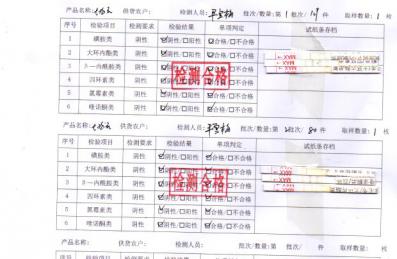 产品名称: 供货农户: 检测人员: 批次/数量:第1批次/19件 取样数量:1枚
序号 检验项目 检测要求 检验结果 单项判定 试纸条存档
1 磺胺类 阴性 ☑阴性/☐阳性 ☑合格/☐不合格
2 大环内酯类 阴性 ☑阴性/☐阳性 ☑合格/☐不合格
3 β-内酰胺类 阴性 ☑阴性/☐阳性 ☑合格/☐不合格
4 四环素类 阴性 ☑阴性/☐阳性 ☑合格/☐不合格
5 氯霉素类 阴性 ☑阴性/☐阳性 ☑合格/☐不合格
6 喹诺酮类 阴性 ☑阴性/☐阳性 ☑合格/☐不合格
检测合格
MAX
MAX
产品名称: 供货农户: 检测人员: 批次/数量:第 批次/80件 取样数量:1枚
序号 检验项目 检测要求 检验结果 单项判定 试纸条存档
1 磺胺类 阴性 ☑阴性/☐阳性 ☑合格/☐不合格
2 大环内酯类 阴性 ☑阴性/☐阳性 ☑合格/☐不合格
3 β-内酰胺类 阴性 ☑阴性/☐阳性 ☑合格/☐不合格
4 四环素类 阴性 ☑阴性/☐阳性 ☑合格/☐不合格
5 氯霉素类 阴性 ☑阴性/☐阳性 ☑合格/☐不合格
6 喹诺酮类 阴性 ☑阴性/☐阳性 ☑合格/☐不合格
检测合格
MAX
产品名称: 供货农户: 检测人员: 批次/数量:第 批次/ 件 取样数量: 枚